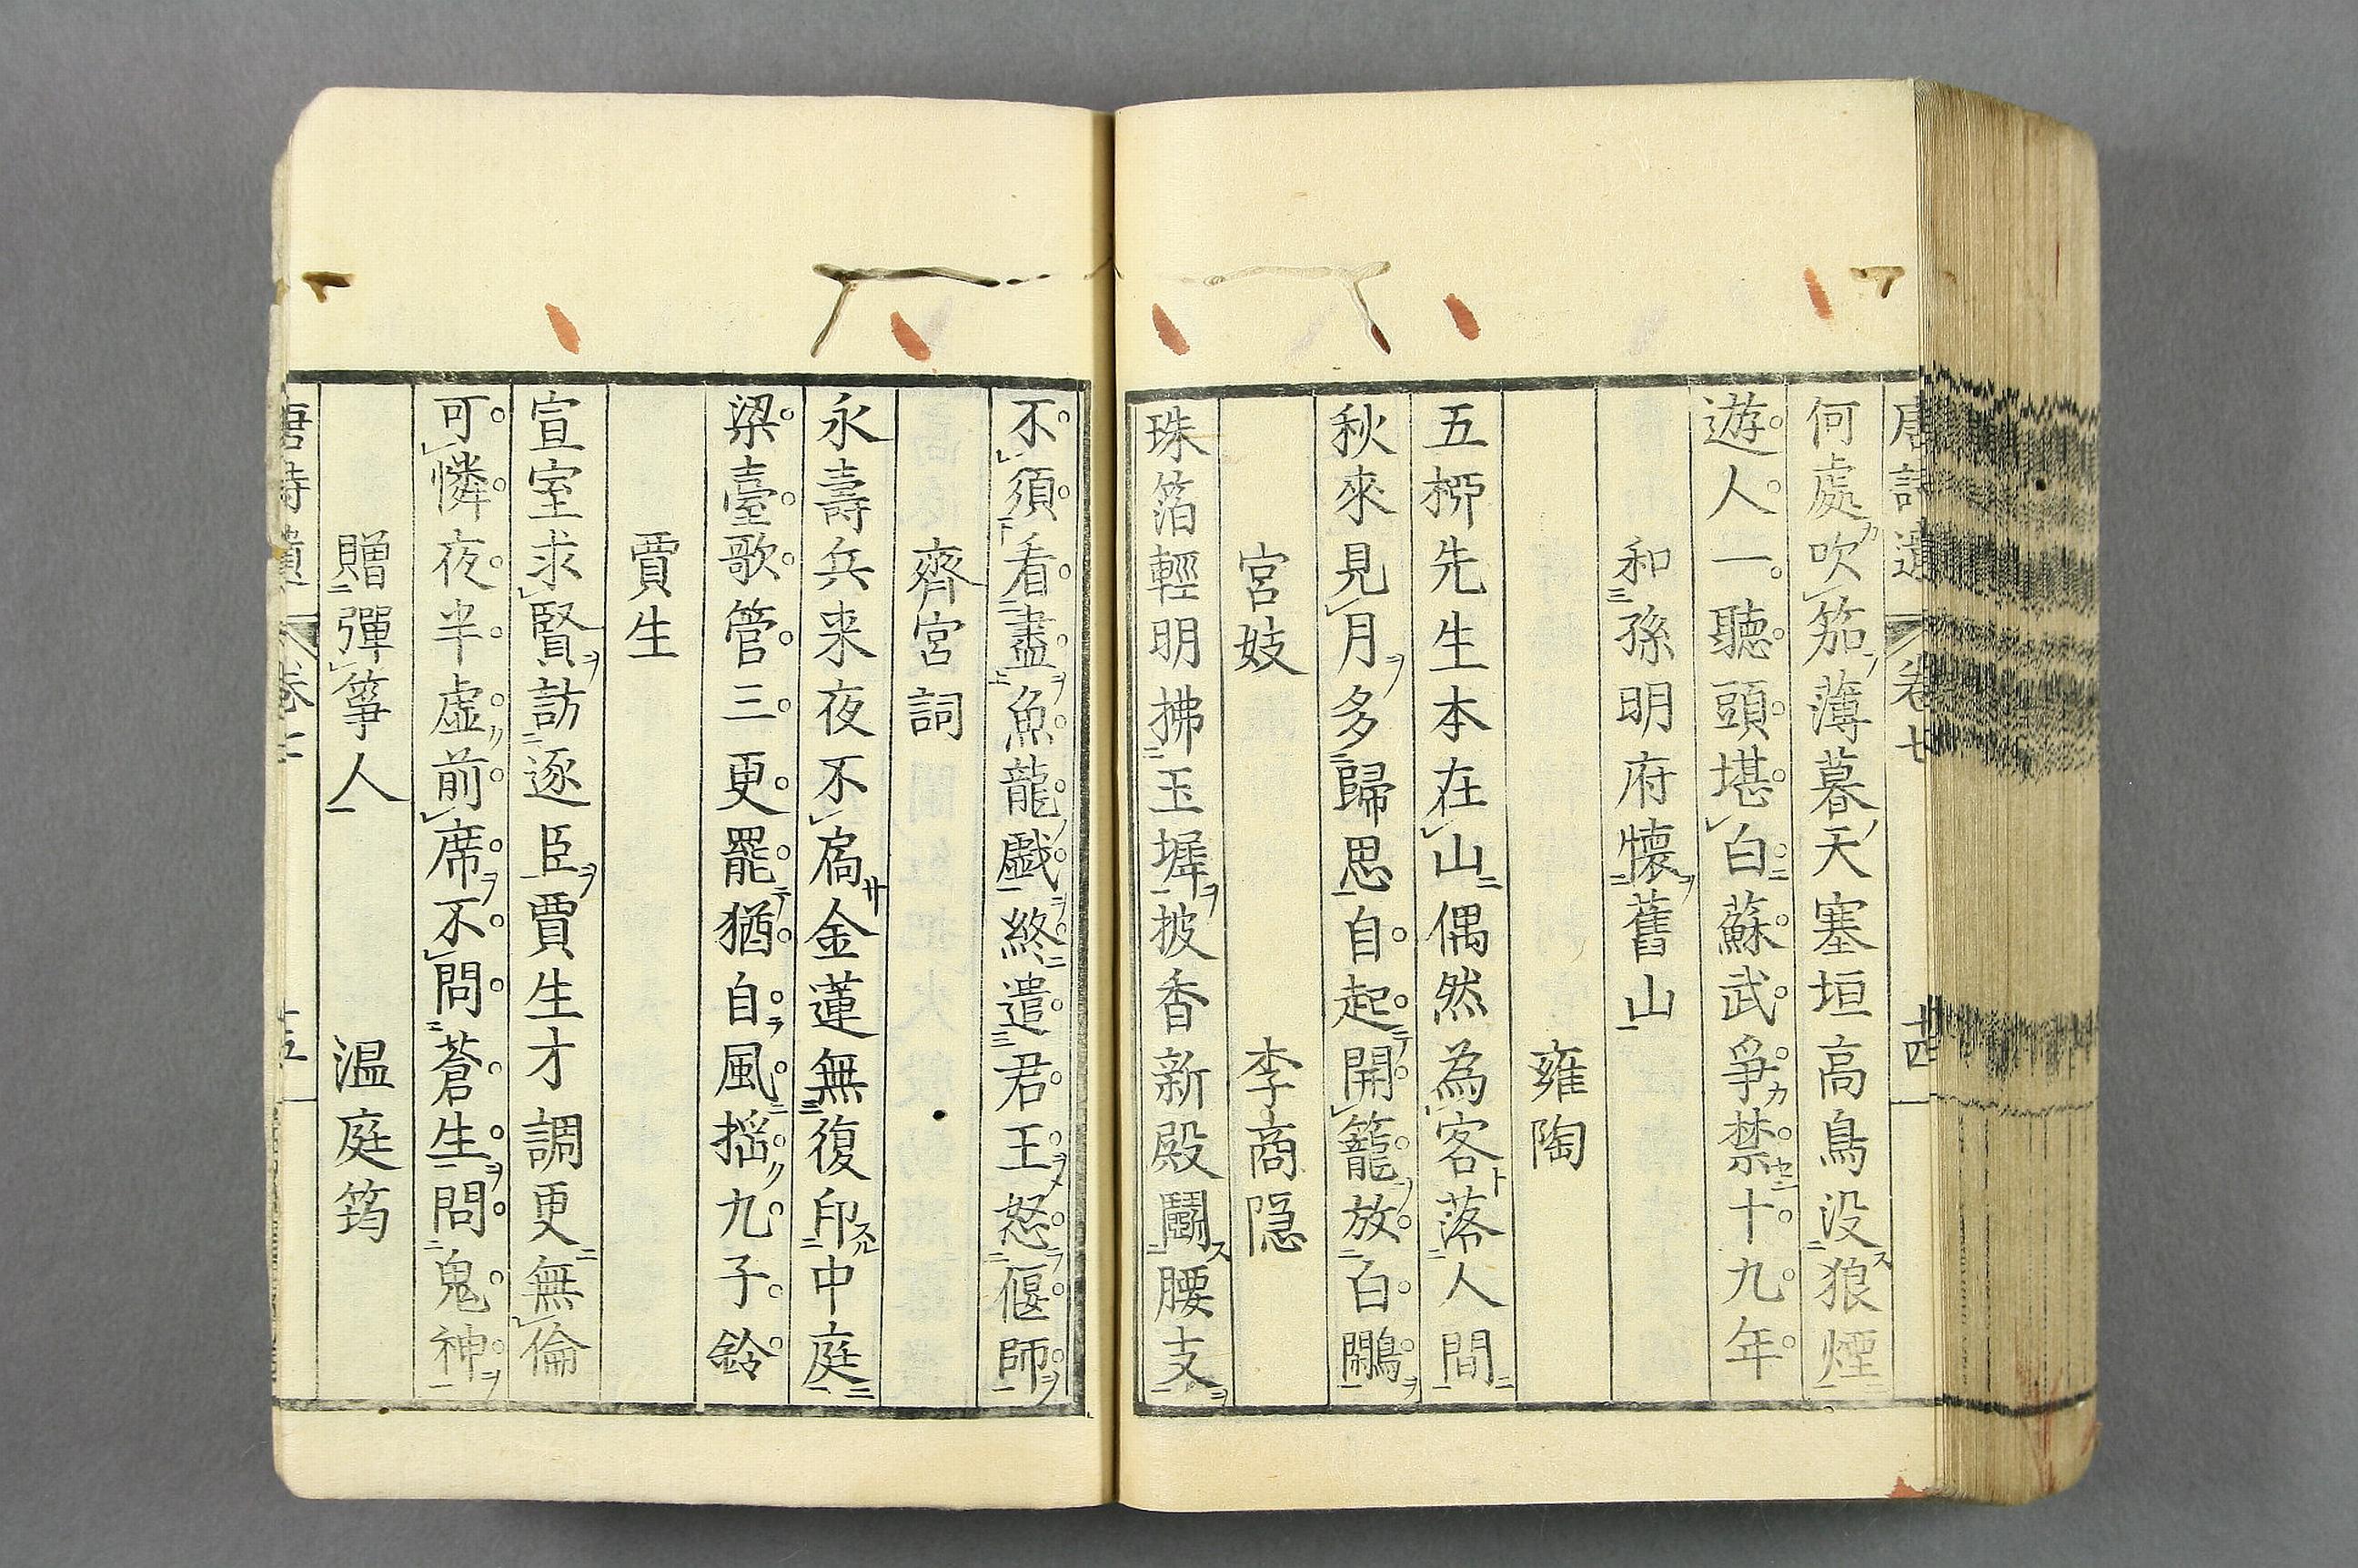 唐詩遺 卷七 十四
何處吹笳薄暮天塞垣高鳥没狼煙
遊人一聽頭堪白蘇武爭禁十九年
和孫明府懷舊山
雍陶
五栁先生本在山偶然為客落人間
秋來見月多歸思自起開籠放白鷴
宮妓 李商隠
珠箔輕明拂玉墀披香新殿鬬腰支
不須看盡魚龍戯終遣君王怒偃師
齊宮詞
永壽兵来夜不扃金蓮無復印中庭
梁臺歌管三更罷猶自風揺九子鈴
賈生
宣室求賢訪逐臣賈生才調更無倫
可憐夜半虚前席不問蒼生問鬼神
贈彈箏人 温庭筠
唐詩遺 卷七 十五